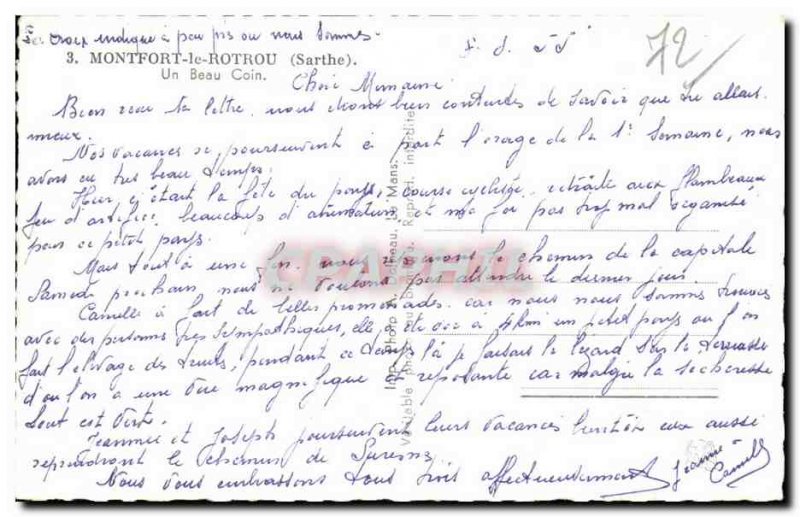 La croix indique à peu près ou nous sommes.
72
3. MONTFORT-le-ROTROU (Sarthe).
Un Beau Coin.
Chère Mémaine
Bien reçu ta lettre, nous étions bien contentes de savoir que tu allais
mieux.
Nos vacances se poursuivent à part l'orage de la 1e semaine, nous
avons eu très beau temps.
Hier, c'était la fête du pays, course cycliste, retraite aux flambeaux
feu d'artifice, beaucoup d'animation, et ma foi pas trop mal organisé
pour ce petit pays.
Mais tout à une fin, nous reprenons le chemin de la capitale
Samedi prochain nous ne voulons pas attendre le dernier jour.
Camille a fait de belles promenades, car nous nous sommes trouvés
avec des personnes très sympathiques, elle a été à 4 km un petit pays ou l'on
fait l'élevage des truites, pendant ce temps là je faisais le lézard sur la terrasse
d'ou l'on a une vue magnifique et reposante car malgré la sécheresse
tout est vert.
Jeannine et Joseph poursuivent leurs vacances bientôt eux aussi
reprendront le chemin de Suresnes
Nous vous embrassons tous trois affectueusement
Jeanne
Camille
Imp. Photo
Le Mans.
Véritable
Reprod. interdite
CPAPHIL